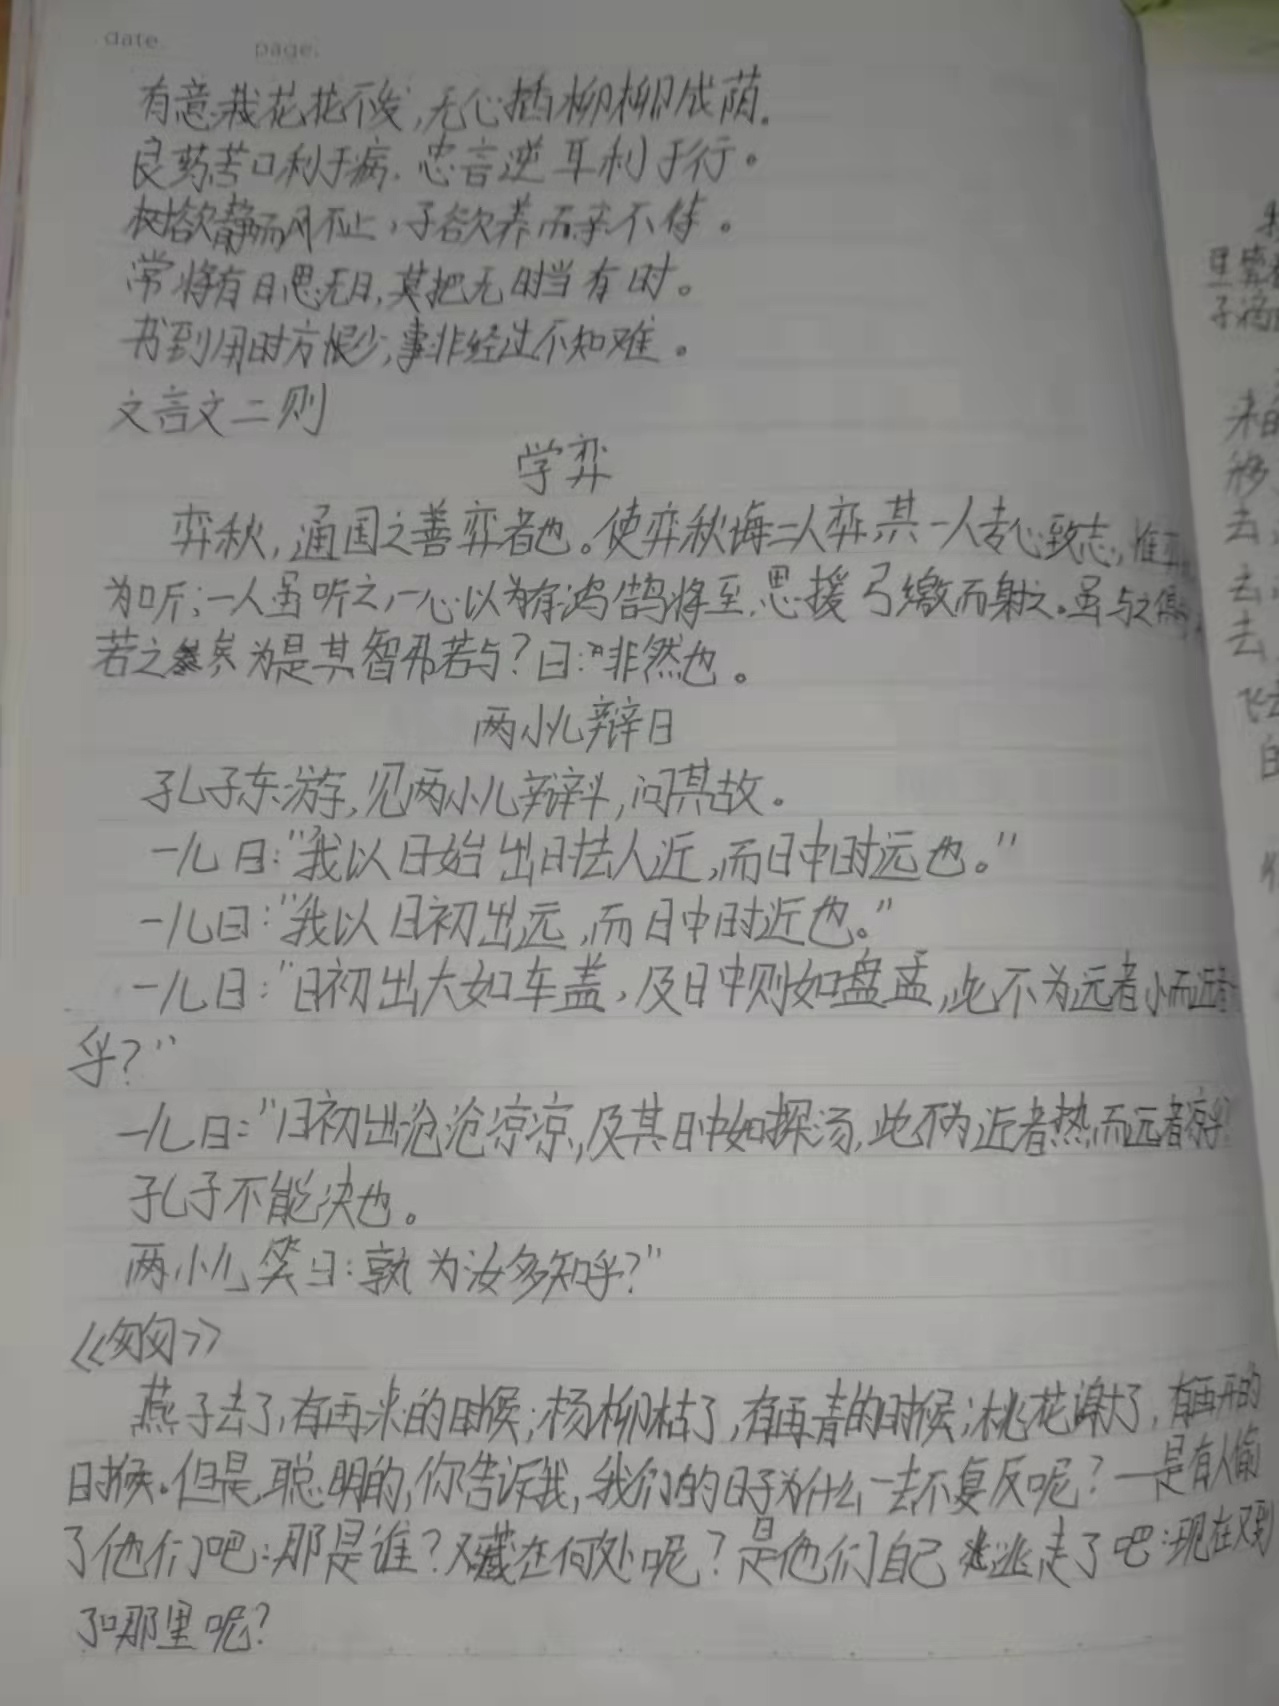 date.  page.
有意栽花花不发,无心插柳柳成荫.
良药苦口利于病.忠言逆耳利于行。
树欲静而风不止,子欲养而亲不待。
常将有日思无日,莫把无时当有时。
书到用时方恨少,事非经过不知难。
文言文二则
学弈
弈秋,通国之善弈者也。使弈秋诲二人弈,其一人专心致志,惟
为听;一人虽听之,一心以为有鸿鹄将至,思援弓缴而射之。虽与之俱
若之矣为是其智弗若与?曰:"非然也。
两小儿辩日
孔子东游,见两小儿辩斗,问其故。
一儿曰:"我以日始出时去人近,而日中时远也。"
一儿曰:"我以日初出远,而日中时近也。"
一儿曰:"日初出大如车盖,及日中则如盘盂,此不为远者小而近者
乎?"
一儿曰:"日初出沧沧凉凉,及其日中如探汤,此不为近者热而远者凉乎
孔子不能决也。
两小儿笑曰:孰为汝多知乎?"
《匆匆》
燕子去了,有再来的时候;杨柳枯了,有再青的时候;桃花谢了,有再开的
时候。但是,聪明的,你告诉我,我们的日子为什么一去不复反呢?—是有人偷
了他们吧:那是谁?又藏在何处呢?是他们自己逃走了吧:现在又到
了哪里呢?
里
子
来的
移
去
去
去